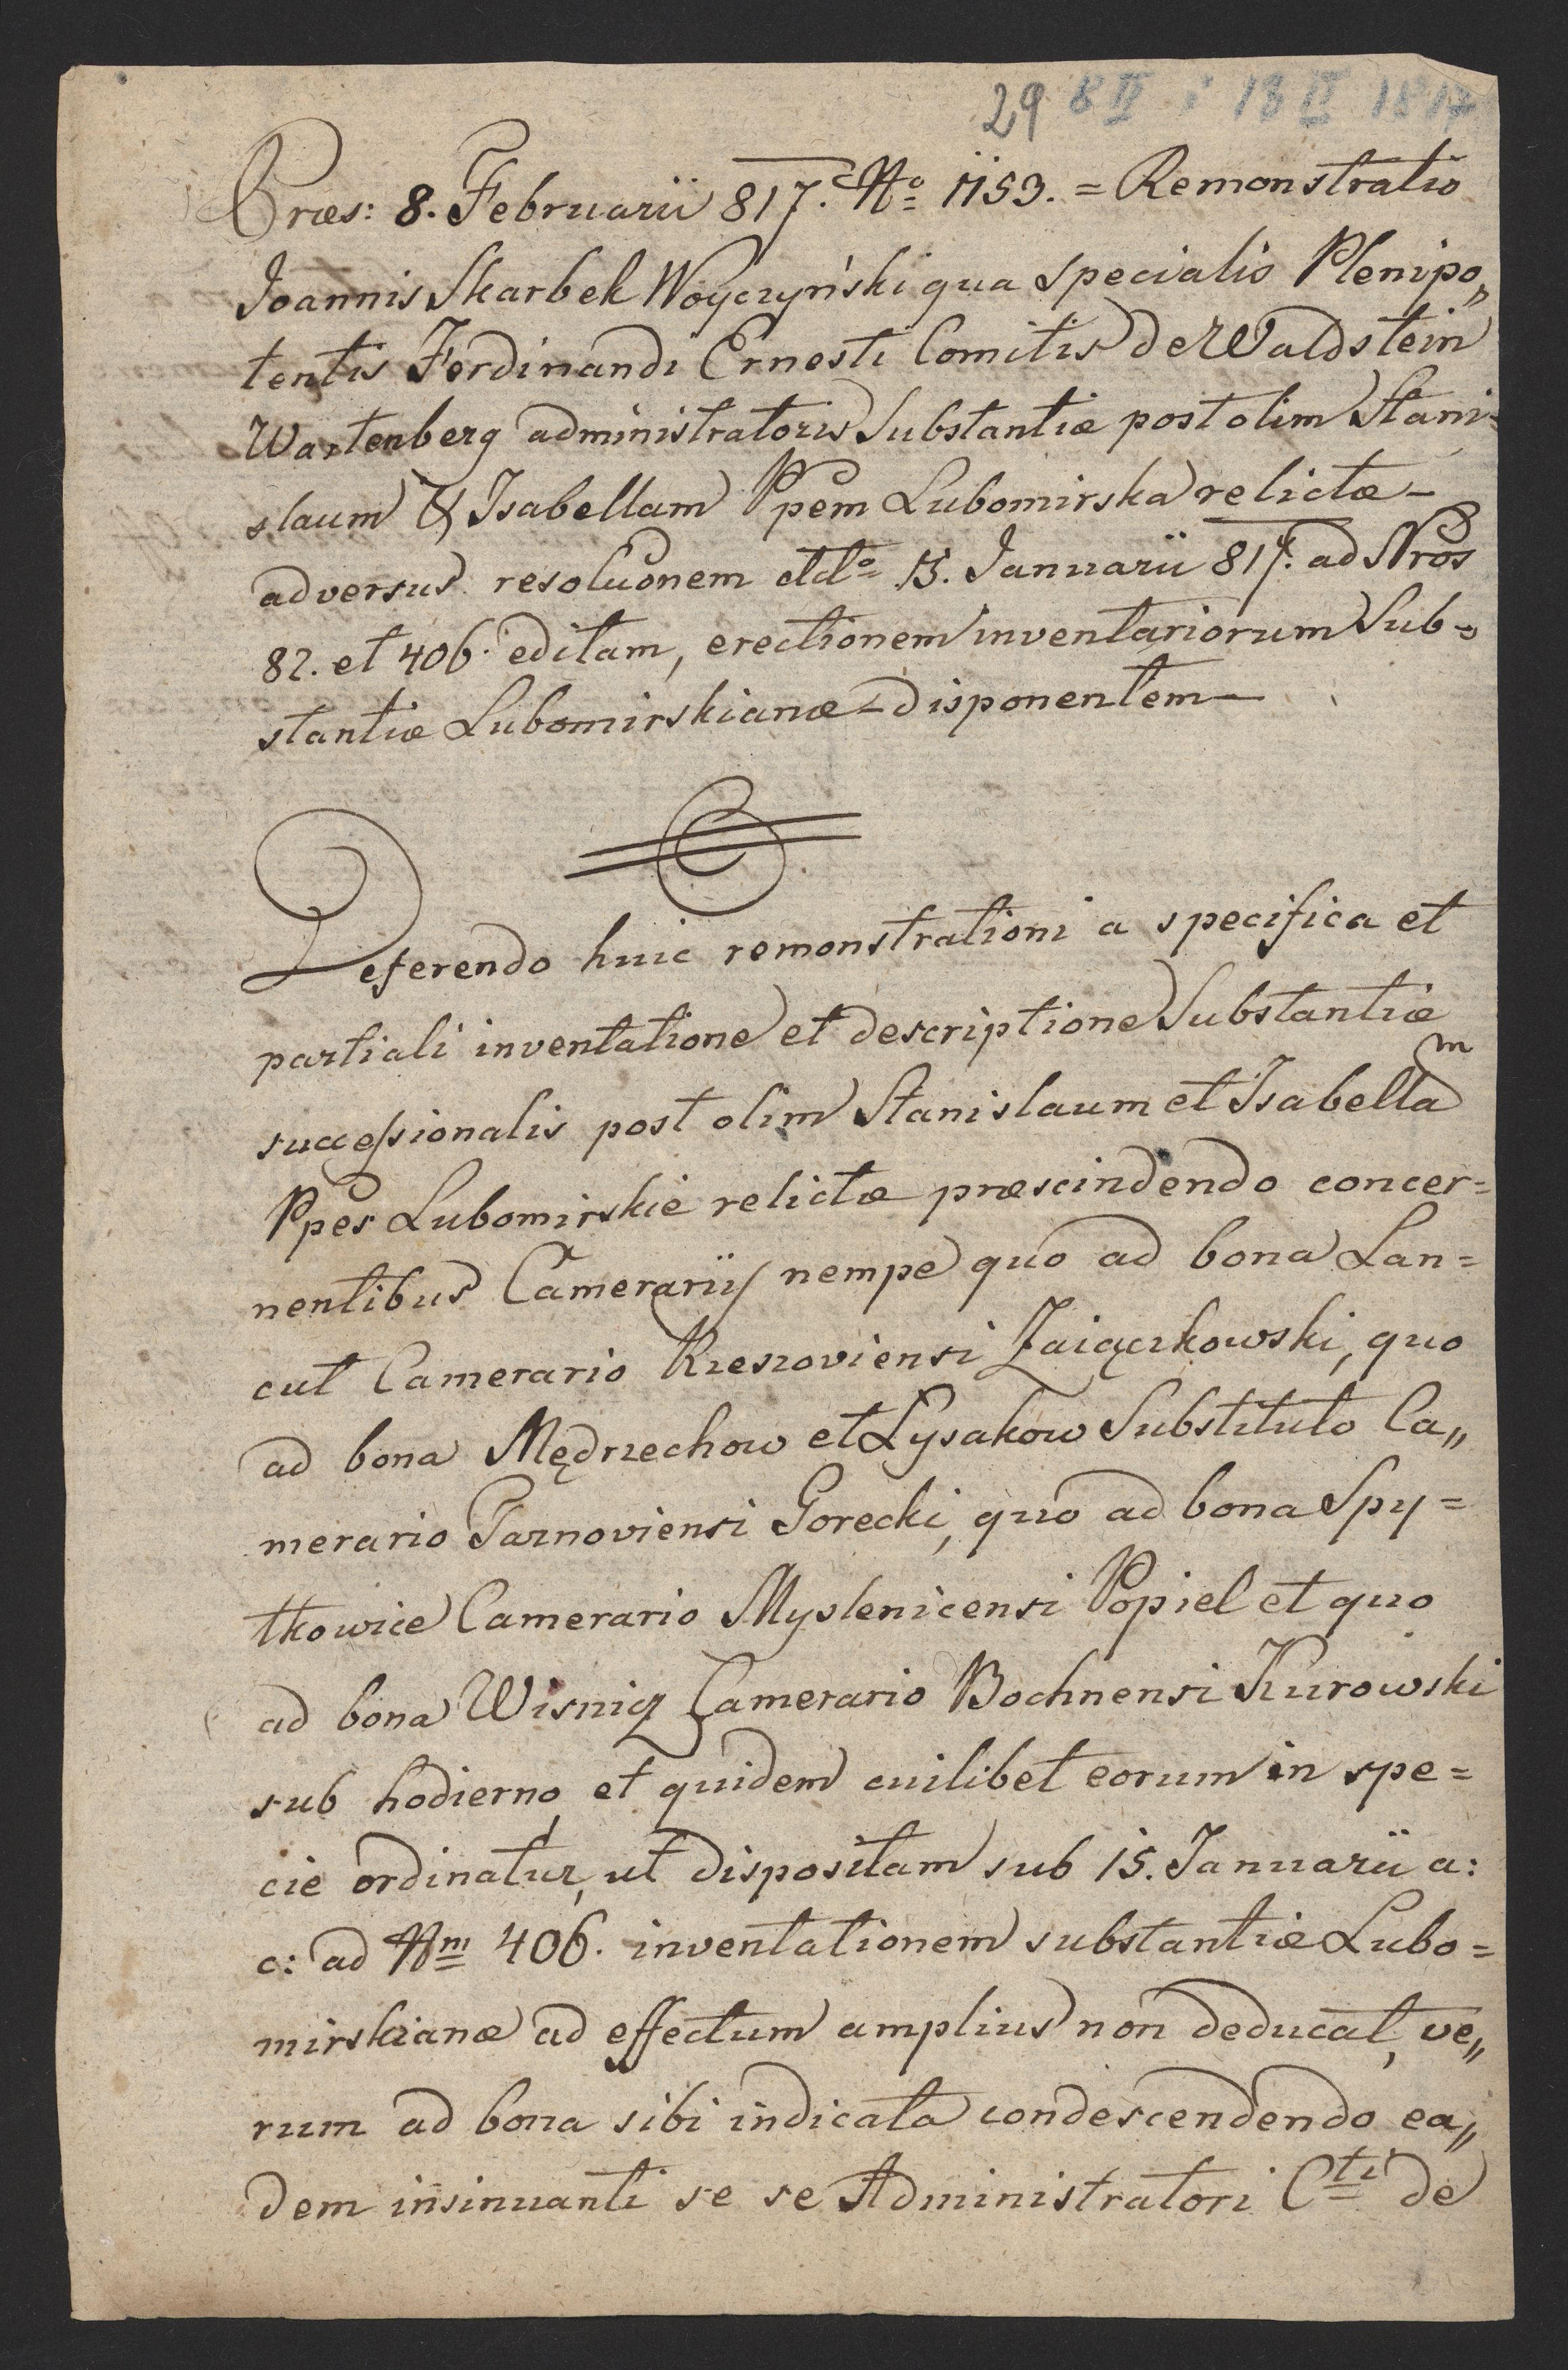 29 8 II i 13 II 1817
Præs: 8. Februarii 817. No 1153. = Remonstratio
Joannis Skarbek Woyczyński qua specialis Plenipo„
tentis Ferdinandi Ernesti Comitis de Waldstein
Wartenberg administratoris Substantiæ post olim Stani=
slaum & Isabellam Ppem Lubomirska relictæ –
adversus resoluonem ddo 15. Januarii 817. ad Nros
82. et 406. editam, erectionem inventariorum Sub=
stantiæ Lubomirskianæ – disponentem –
Deferendo huic remonstrationi a specifica et
partiali inventatione et descriptione Substantiæ
successionalis post olim Stanislaum et Isabellam
Ppes Lubomirskie relictæ præscindendo concer=
nentibus Camerariis nempe quo ad bona Lan=
cut Camerario Rzeszoviensi Zaiączkowski, quo
ad bona Mędrzechow et Lysakow Substituto Ca„
merario Tarnoviensi Gorecki, quo ad bona Spy=
tkowice Camerario Myslenicensi Popiel et quo
ad bona Wisnicz Camerario Bochnensi Kurowski
sub hodierno et quidem cuilibet eorum in spe=
cie ordinatur, ut dispositam sub 15. Januarii a:
c: ad Nm 406. inventationem substantiæ Lubo=
mirskianæ ad effectum amplius non deducat, ve„
rum ad bona sibi indicata condescendendo ea„
dem insinuanti se se Administratori Cti de